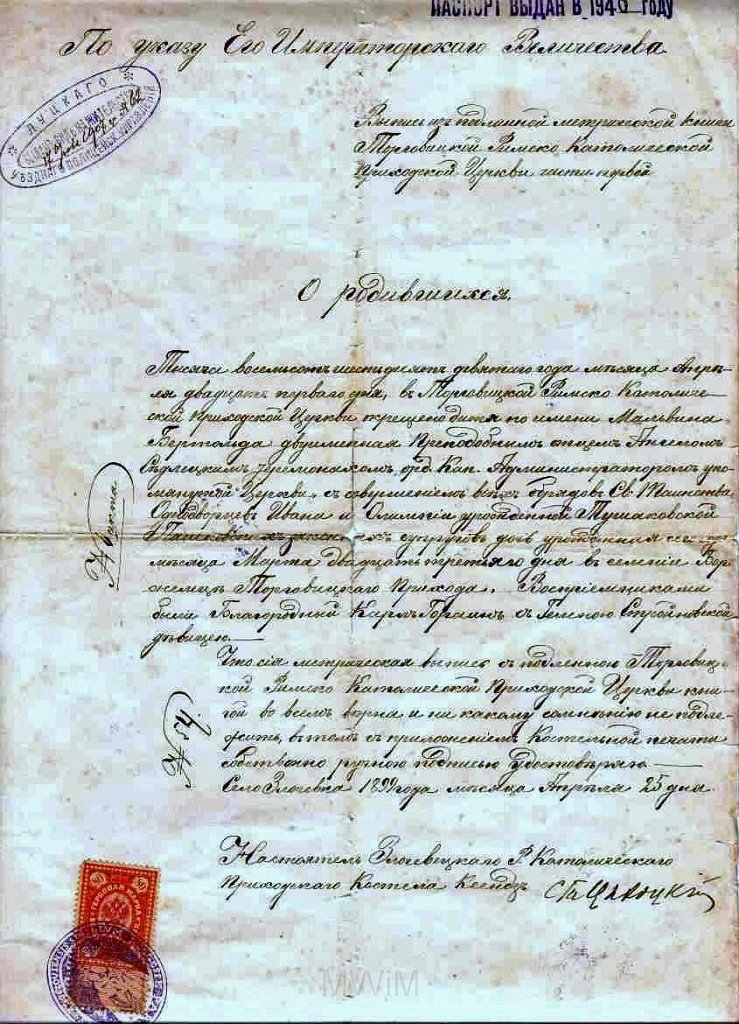 ПАСПОРТ ВЫДАН В 1946 ГОДУ
По указу Его Императорскаго Величества
ЛУЦКАГО
УѢЗДНАГО ПОЛИЦЕЙСК УПРАВЛЕНІЯ
Выпись изъ подлинной метрической книги
Торговицкой Римско Католической
Приходской Церкви части первой
О родившихся.
Тысяча восемьсотъ шестьдесятъ девятаго года мѣсяца Апрѣ-
ля двадцать перваго дня, въ Торговицкой Римско Католиче-
ской Приходской Церкви крещено дитя по имени Мальвина
Бертольда двуименная Преподобнымъ отцемъ Ангеломъ
Сѣдлецкимъ Іеромонахомъ орд. Кап. Администраторомъ упо-
мянутой Церкви, съ совершеніемъ всѣхъ обрядовъ Св. Таинства
Ивана и Олимпіи урожденной Тушаковской
законныхъ супруговъ дочь урожденная сего
мѣсяца Марта двадцать третьяго дня въ селеніи Бор-
Торговицкаго Прихода. Воспріемниками
были Благородный Карлъ съ Геленою Стройновской
дѣвицею
№ 49
Что сія метрическая выпись съ подленною Торговиц-
кой Римско Католической Приходской Церкви кни-
гой во всемъ вѣрна и ни какому сомнѣнію не подле-
житъ, въ томъ съ приложеніемъ Костельной печати
собственно ручною подписью удостовѣряю
Село 1899 года мѣсяца Апрѣля 25 дня.
Настоятель Р. Католическаго
Приходскаго Костела Ксендзъ
80 80
MWiM